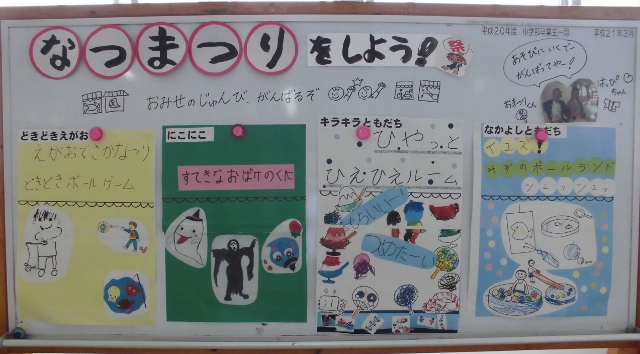 平成20年度 小学部卒業生一同 平成21年3月
なつまつりをしよう!!
祭
おみせのじゅんび、がんばるぞ
あそびにいくてー
がんばってやー!
はっぴ
ちゃん
おまつりくん
どきどきえがお
えがおでこかなつり
どきどきボールゲーム
にこにこ
すてきなおばけのくに
キラキラともだち
ひやっと
ひえひえルーム
つめたーい
なかよしともだち
イエス!
みずのボールランド
シュッシュッ